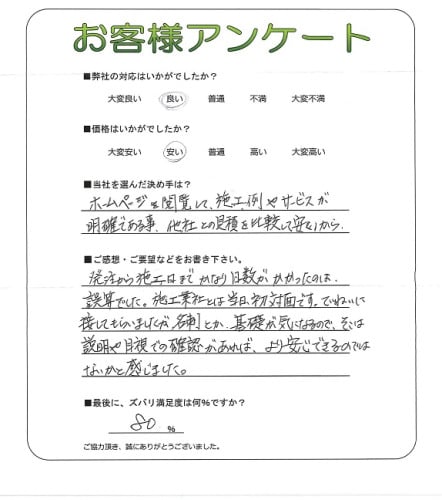 お客様アンケート
■弊社の対応はいかがでしたか?
大変良い 良い 普通 不満 大変不満
■価格はいかがでしたか?
大変安い 安い 普通 高い 大変高い
■当社を選んだ決め手は?
ホームページを閲覧して、施工例やサービスが
明確である事、他社との見積を比較して安いから.
■ご感想・ご要望などをお書き下さい。
発注から施工日までかなり日数がかかったのは.
誤算でした。施工業社とは当日初対面です。ていねいに
接してもらいましたが、名刺とか、基礎が気になるので、そこは
説明や目視での確認があれば、より安心できるのでは
ないかと感じました。
■最後に、ズバリ満足度は何%ですか?
80 %
ご協力頂き、誠にありがとうございました。